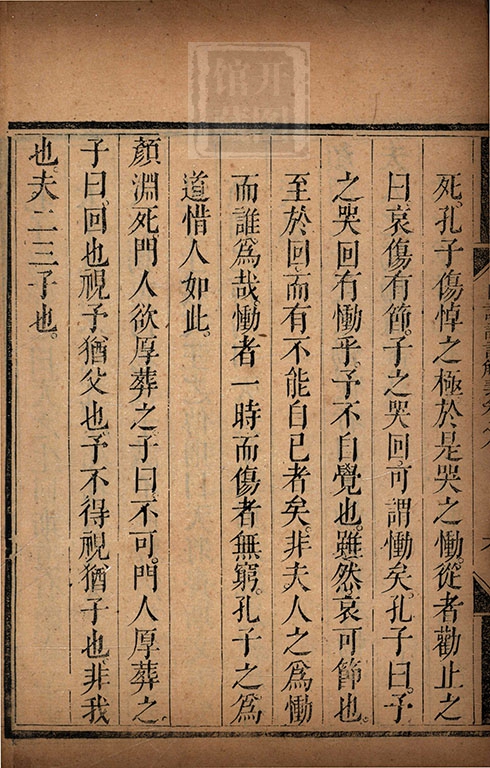 死。孔子傷悼之極於是哭之慟。從者勸止之
曰哀傷有節。子之哭回可謂慟矣。孔子曰。子
之哭回有慟乎。予不自覺也。雖然哀可節也。
至於回而有不能自已者矣。非夫人之爲慟
而誰爲哉。慟者一時而傷者無窮。孔子之爲
道惜人如此。
顏淵死門人欲厚葬之子曰不可。門人厚葬之
子曰。回也視予猶父也。予不得視猶子也。非我
也。夫二三子也。